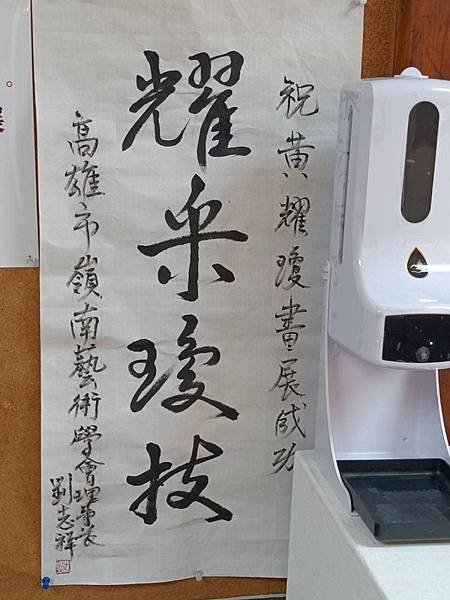 祝黃耀瓊書展成功
耀采瓊技
高雄市嶺南藝術學會理事長
劉志祥